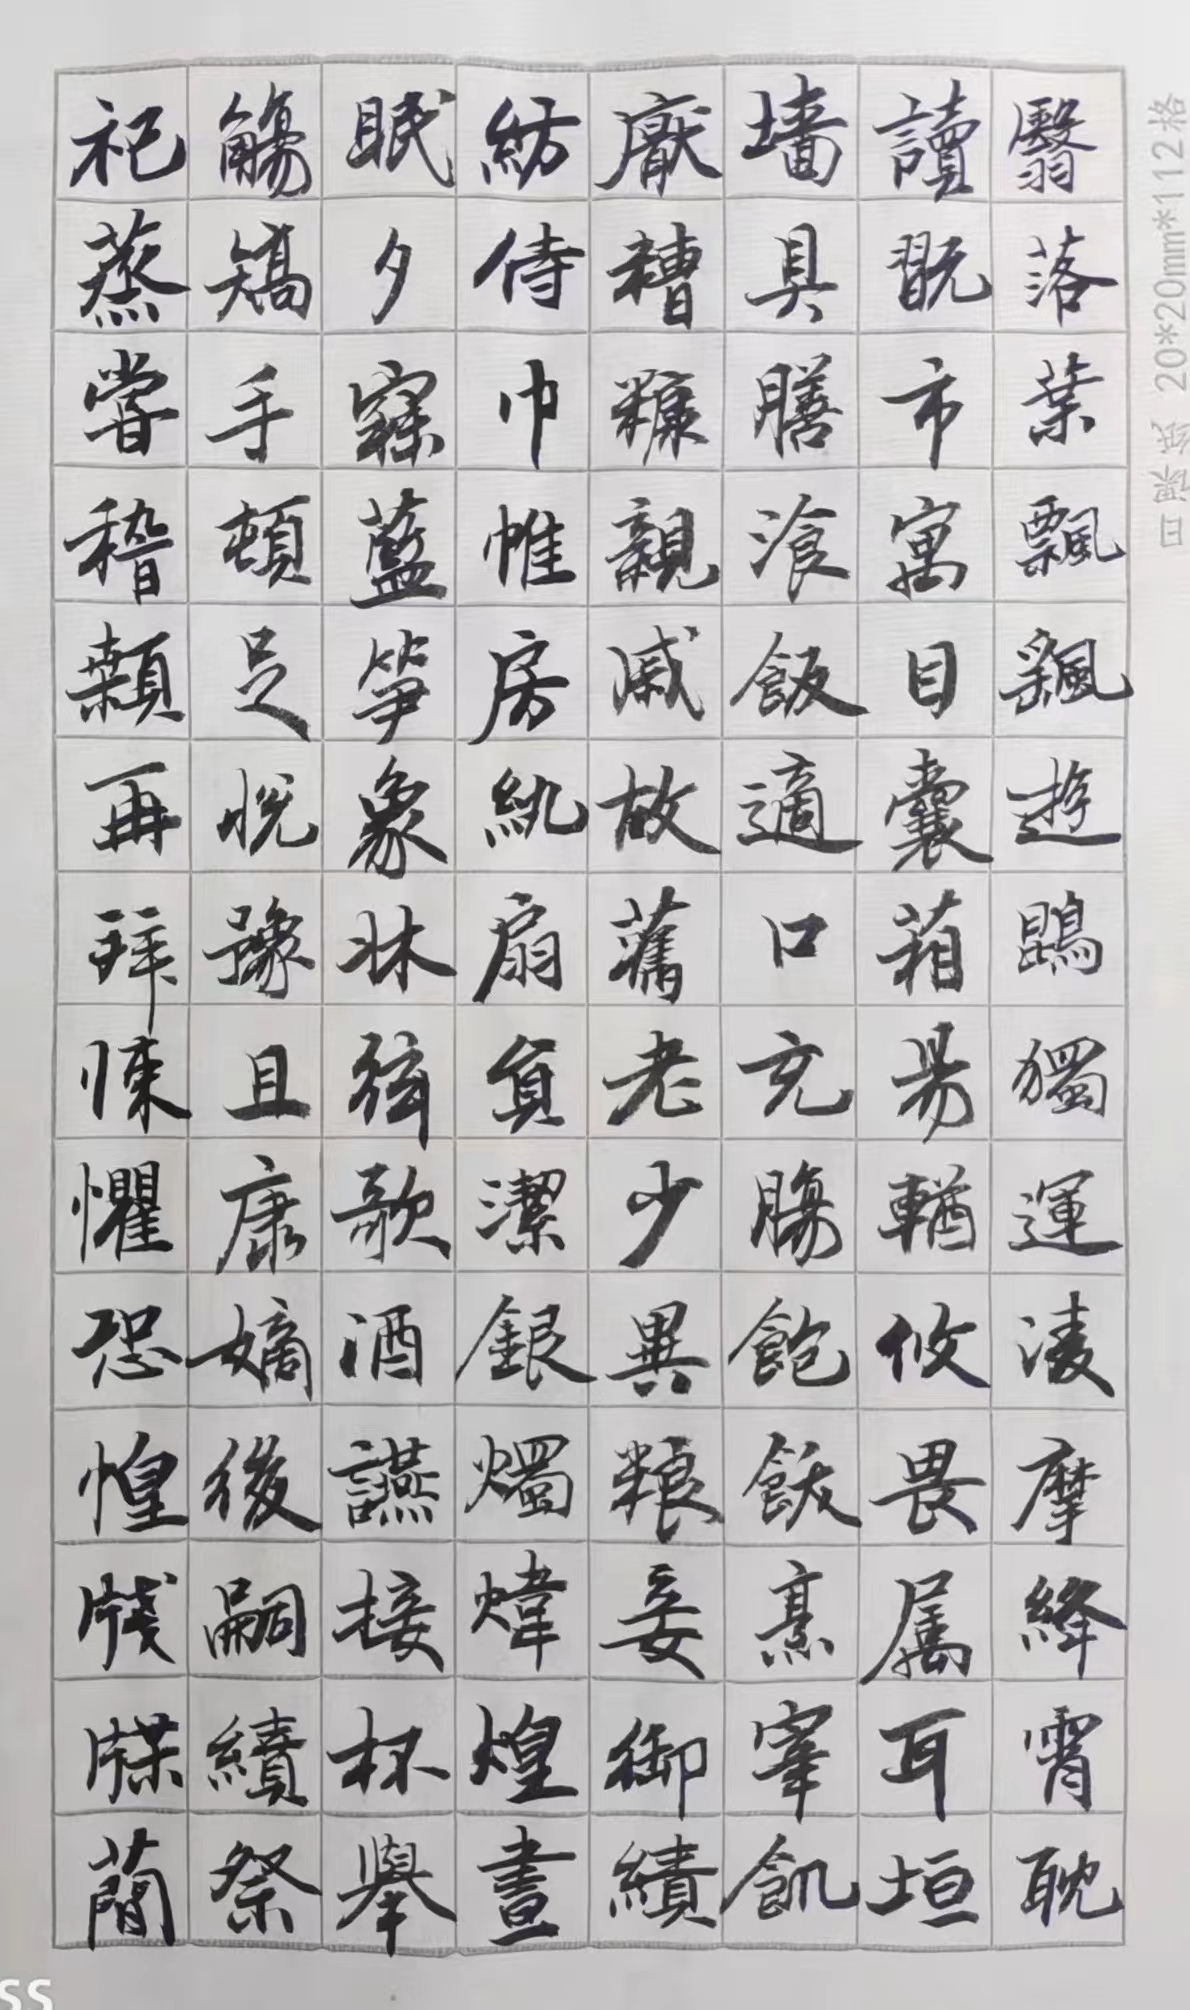 翳落葉飄飖遊鵾獨運凌摩絳霄耽
讀翫市寓目囊葙易輶攸畏属耳垣
墙具膳飡飯適口充腸飽飫烹宰飢
厭糟糠親戚故舊老少異粮妾御績
紡侍巾帷房紈扇員潔銀燭煒煌晝
眠夕寐藍笋象牀弦歌酒讌接杯舉
觴矯手頓足悦豫且康嫡後嗣續祭
祀蒸嘗稽顙再拜悚懼恐惶牋牒蕳
日照域 20*20mm*112格
SS